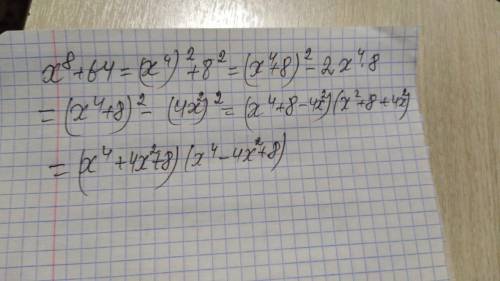 x⁸+64=(x⁴)²+8²=(x⁴+8)²-2x⁴·8
=(x⁴+8)²-(4x²)²=(x⁴+8-4x²)(x²+8+4x²)
=(x⁴+4x²+8)(x⁴-4x²+8)